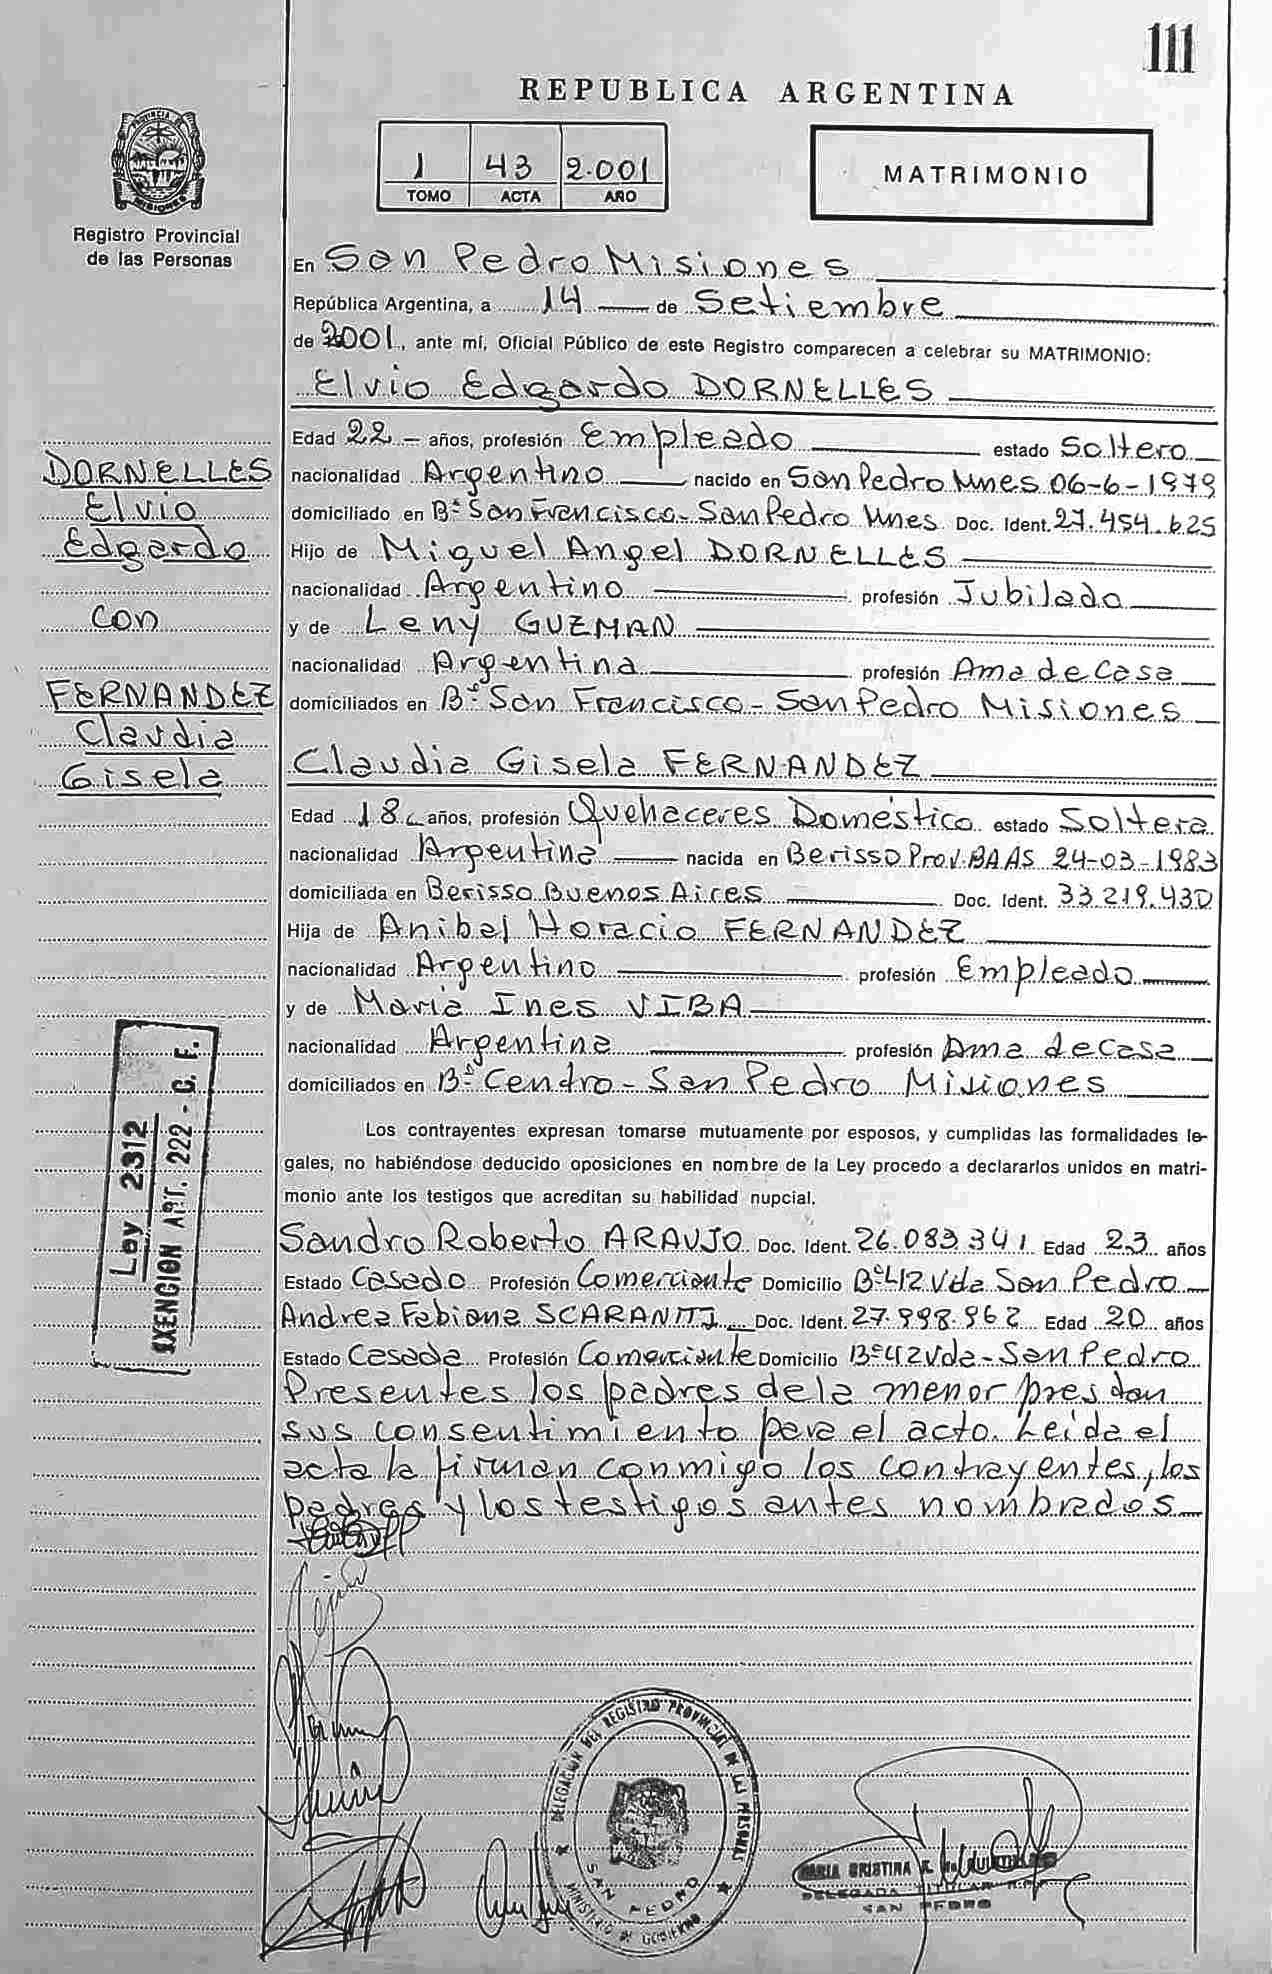 111
REPUBLICA ARGENTINA
1 43 2.001
TOMO ACTA AÑO
MATRIMONIO
PROVINCIA DE
MISIONES
Registro Provincial
de las Personas
En San Pedro Misiones
República Argentina, a 14 de Setiembre
de 2001, ante mí, Oficial Público de este Registro comparecen a celebrar su MATRIMONIO:
Elvio Edgardo DORNELLES
Edad 22 - años, profesión Empleado estado Soltero
nacionalidad Argentino nacido en San Pedro Mnes 06-6-1979
domiciliado en Bº San Francisco - San Pedro Mnes Doc. Ident. 27.454.625
Hijo de Miguel Angel DORNELLES
nacionalidad Argentino profesión Jubilado
y de Leny GUZMAN
nacionalidad Argentina profesión Ama de Casa
domiciliados en Bº San Francisco - San Pedro Misiones
DORNELLES
Elvio
Edgardo
con
FERNANDEZ
Claudia
Gisela
Claudia Gisela FERNANDEZ
Edad 18 años, profesión Quehaceres Doméstico estado Soltera
nacionalidad Argentina nacida en Berisso Prov. BAAS 24-03-1983
domiciliada en Berisso Buenos Aires Doc. Ident. 33.219.430
Hija de Anibal Horacio FERNANDEZ
nacionalidad Argentino profesión Empleado
y de Maria Ines VIBA
nacionalidad Argentina profesión Ama de Casa
domiciliados en Bº Centro - San Pedro Misiones
Ley 2312
EXENCION ART. 222 - C. F.
Los contrayentes expresan tomarse mutuamente por esposos, y cumplidas las formalidades le-
gales, no habiéndose deducido oposiciones en nombre de la Ley procedo a declararlos unidos en matri-
monio ante los testigos que acreditan su habilidad nupcial.
Sandro Roberto ARAUJO Doc. Ident. 26.083.341 Edad 23 años
Estado Casado Profesión Comerciante Domicilio Bº 412 Vda San Pedro
Andrea Fabiana SCARANTTI Doc. Ident. 27.998.962 Edad 20 años
Estado Casada Profesión Comerciante Domicilio Bº 42 Vda - San Pedro
Presentes los padres de la menor prestan
sus consentimiento para el acto. Leída el
acta la firman conmigo los contrayentes, los
padres y los testigos antes nombrados
DELEGACION DEL REGISTRO PROVINCIAL DE LAS PERSONAS
SAN PEDRO
MINISTERIO DE GOBIERNO
MARIA CRISTINA
DELEGADA TITULAR
SAN PEDRO